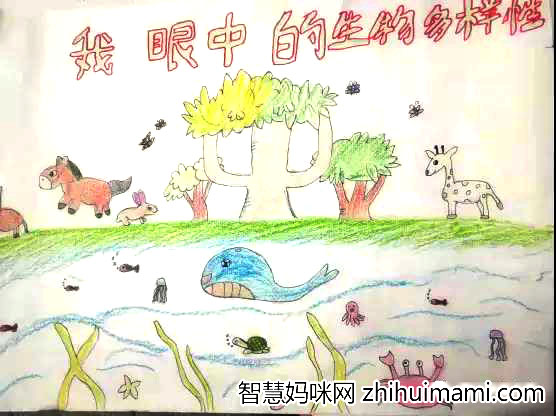 我眼中的生物多样性
智慧妈咪网 zhihuimami.com